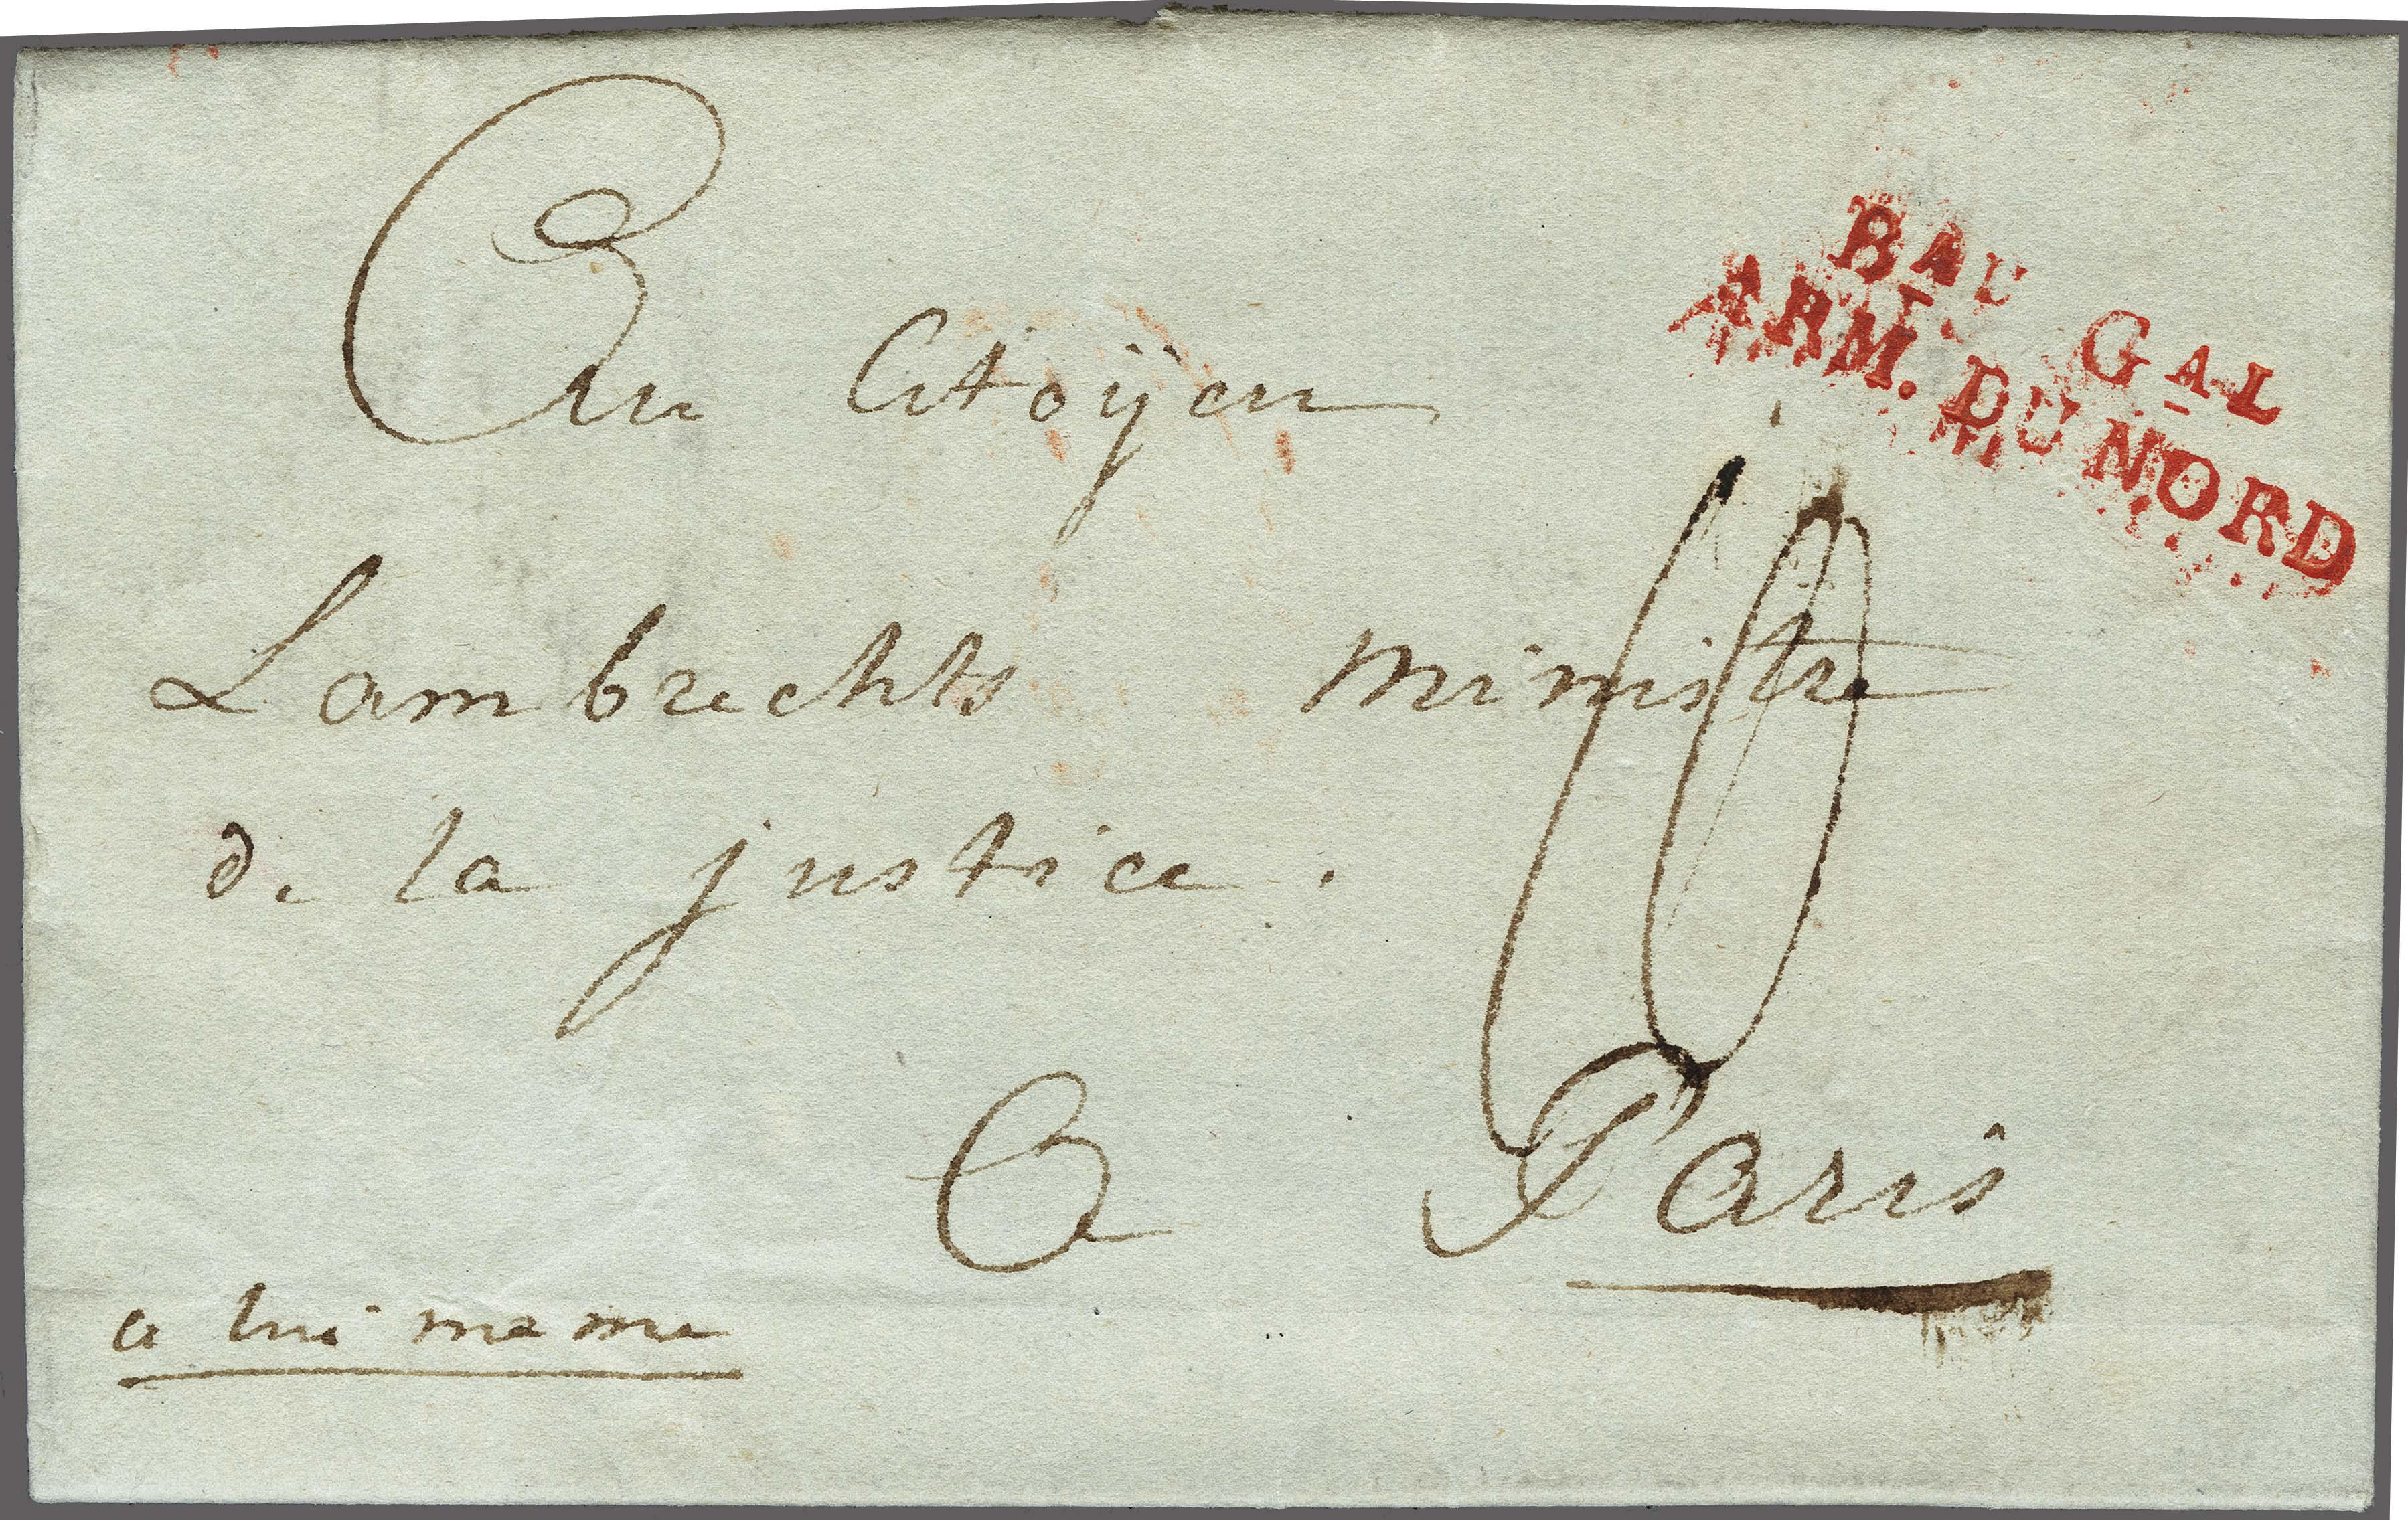 BAU GAL
ARM. DU NORD
Au Citoyen
Lambrechts Ministre
de la justice.
A Paris
a lui meme